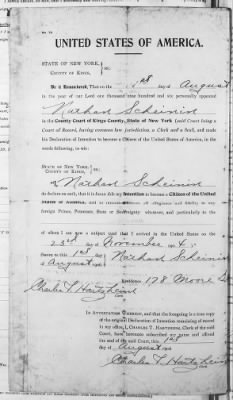 UNITED STATES OF AMERICA.
STATE OF NEW YORK,
COUNTY OF KINGS,
ss:
Be it Remembered, That on the 1st day of August
in the year of our Lord one thousand nine hundred and six personally appeared
Nathan Scheinin
in the County Court of Kings County, State of New York (said Court being a
Court of Record, having common law jurisdiction, a Clerk and a Seal), and made
his Declaration of Intention to become a Citizen of the United States of America,
in the words following, to wit:
STATE OF NEW YORK,
COUNTY OF KINGS,
ss:
I, Nathan Scheinin
do declare on oath, that it is bona fide my intention to become a Citizen of the United
States of America, and to renounce forever all allegiance and fidelity to any
foreign Prince, Potentate, State or Sovereignty whatever, and particularly to the
of whom I am now a subject and that I arrived in the United States on the
23rd day of November
Sworn to this 1st day of
August
Nathan Scheinin
Residence 178 Moore
Charles T. Hartzheim
Clerk.
IN ATTESTATION WHEREOF, and that the foregoing is a true copy
of the original Declaration of Intention remaining of record
in my office, I, CHARLES T. HARTZHEIM, Clerk of the said
Court, have hereunto subscribed my name and affixed
the seal of the said Court, this 1st
day of August
Charles T. Hartzheim
Clerk.